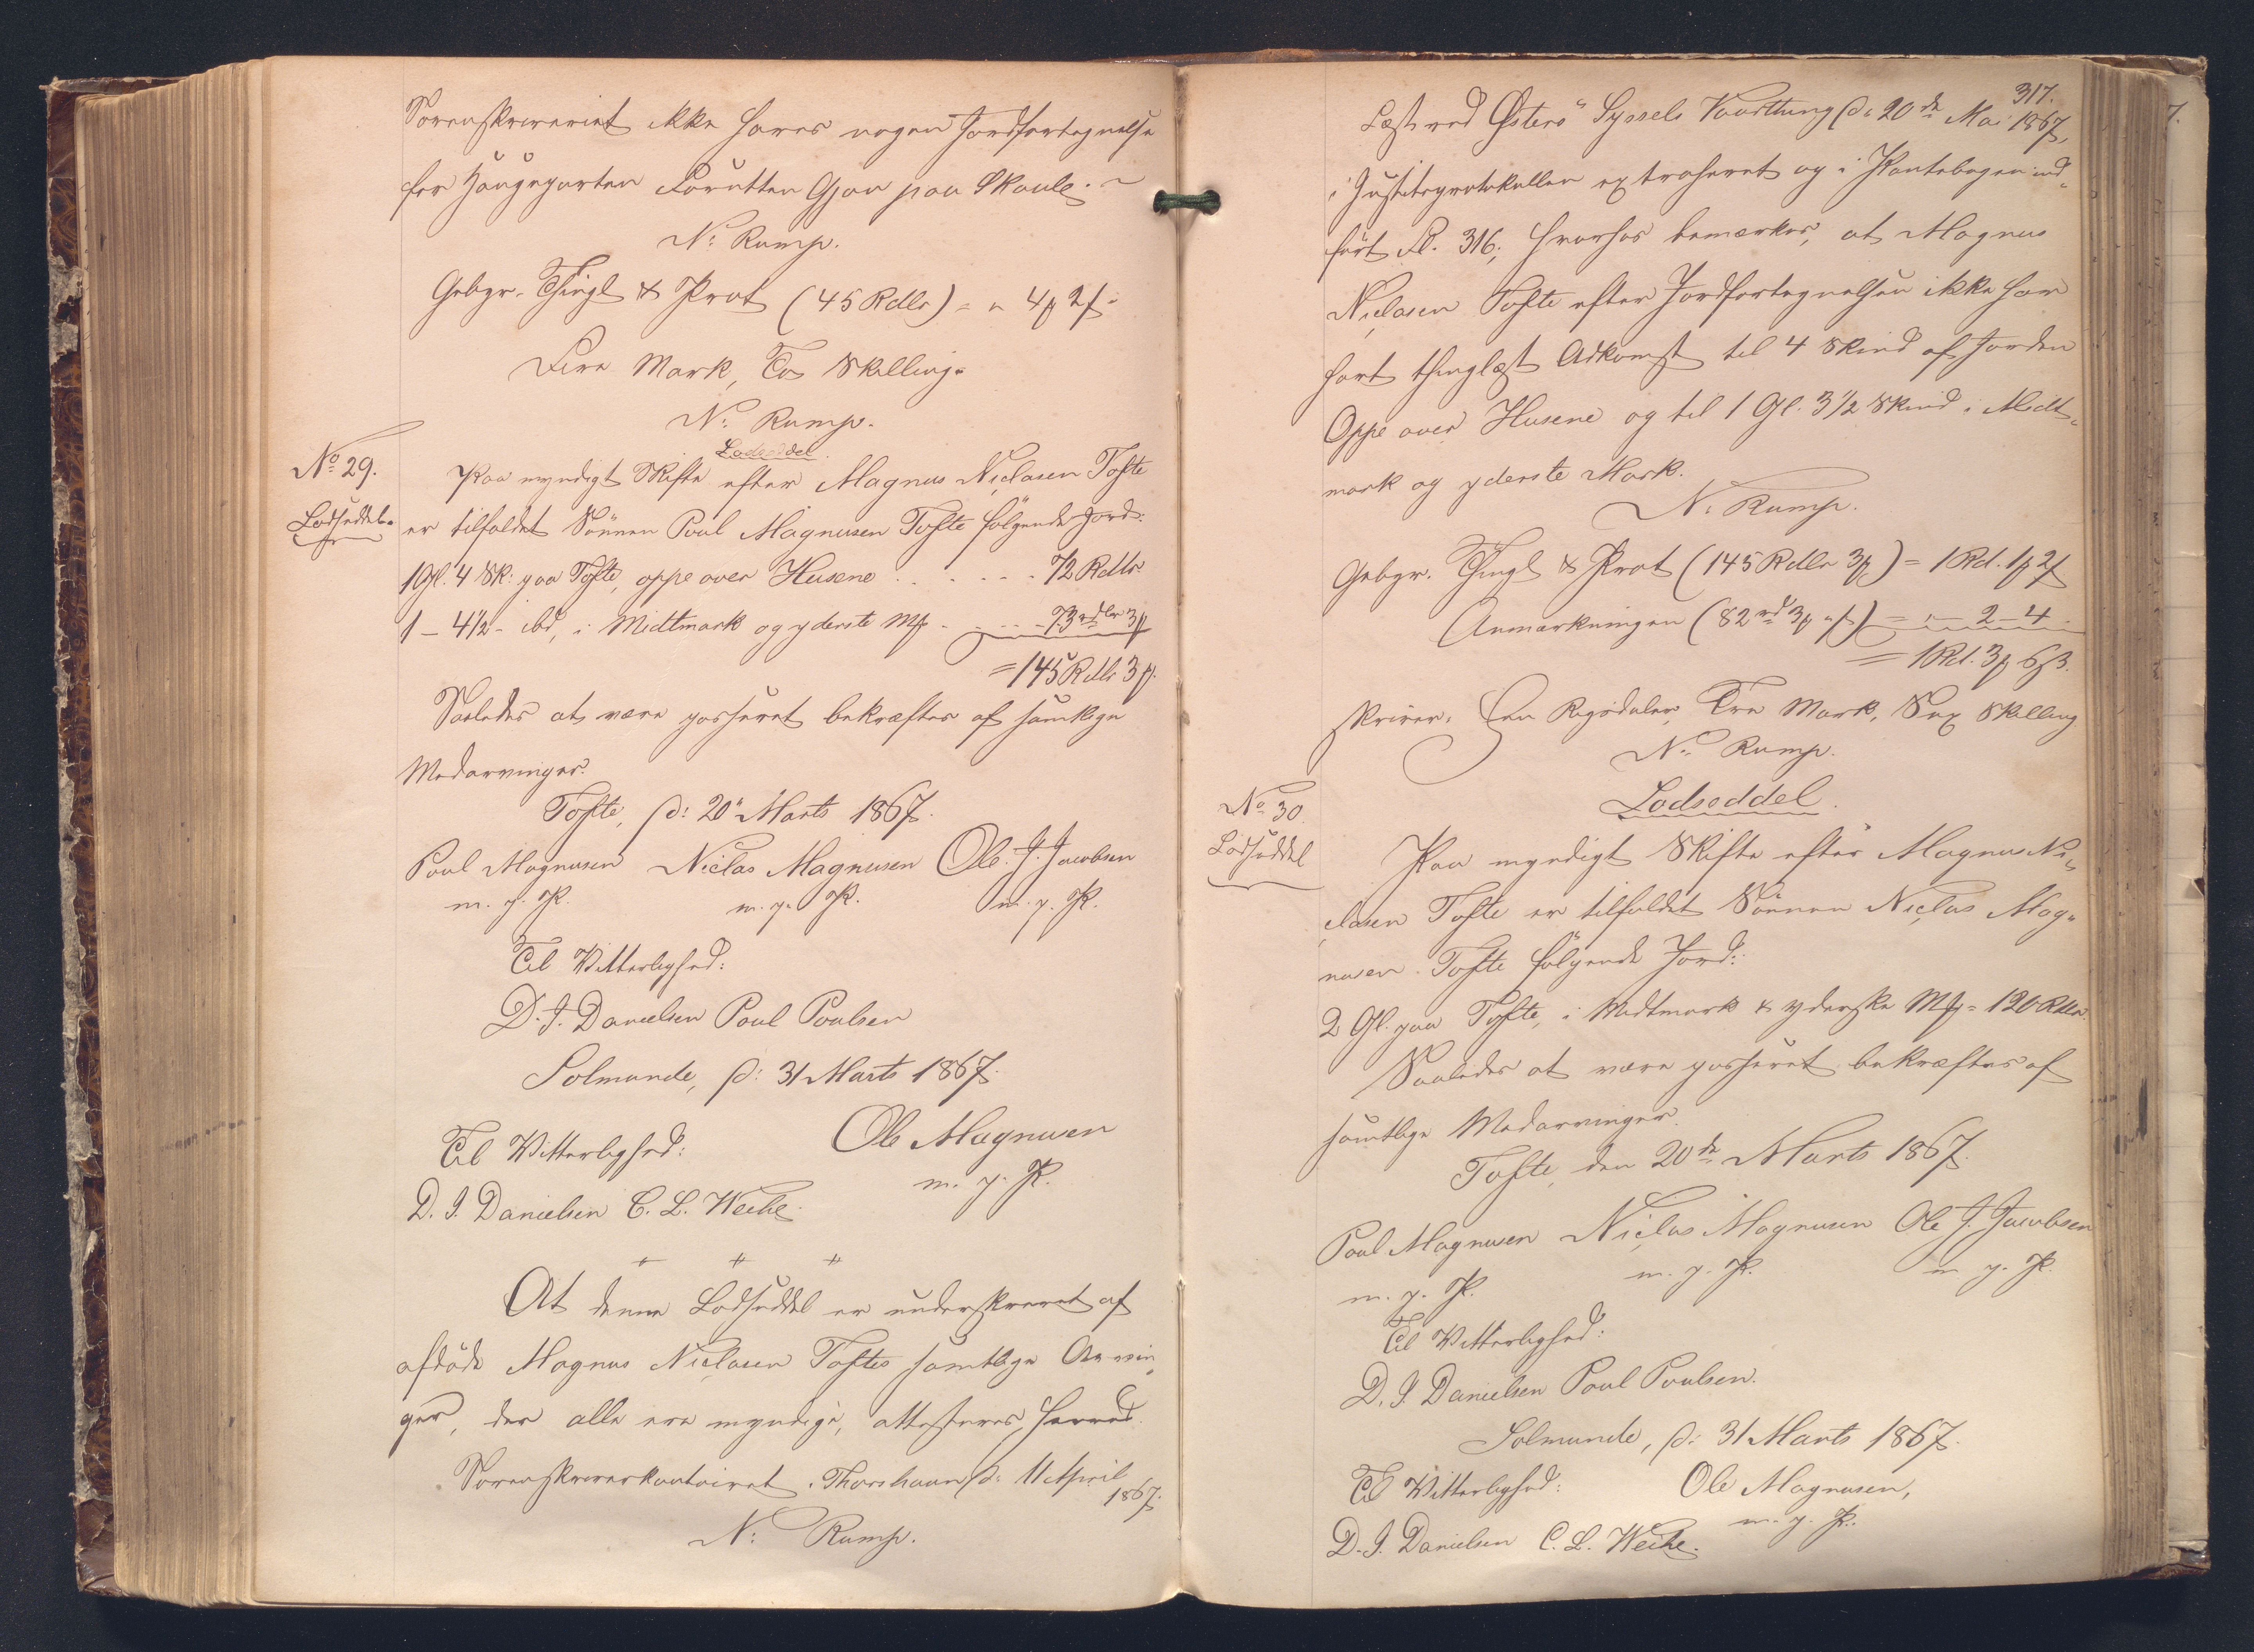 Sorenskriveriet ikke haves nogen Jordfortegnelse
for Haugeparten Forutten Gjov paa Skaale.
N: Rump.
Gebyr. Thingl & Prot (45 Rdlr) = " 4 ꝑ 2 ſ.
Fire Mark, To Skilling.
N: Rump.
Lodseddel.
No 29.
Lodseddel.
Paa myndigt Skifte efter Magnus Niclasen Tofte
er tilfaldet Sönnen Poul Magnusen Tofte følgende Jord:
1 Gl. 4 Sk: paa Tofte, oppe over Husene . . . . . 72 Rdlr
1 – 4½ – ibd, i Midtmark og yderste Mk . . . 73 rdlr 3 ꝑ
= 145 Rdlr 3 ꝑ.
Saaledes at være passeret bekræftes af samtlige
Medarvinger.
Tofte, d: 20 Marts 1867.
Poul Magnusen Niclas Magnusen Ole J. Jacobsen
m. p. P. m. p. P. m. p. P.
Til Vitterlighed:
D. J. Danielsen Poul Poulsen
Solmunde, d: 31 Marts 1867.
Til Vitterlighed: Ole Magnusen
m. p. P.
D. J. Danielsen C. L. Weihe.
At denne Lodseddel er underskrevet af
afdöde Magnus Niclasen Toftes samtlige Arvin
ger, der alle ere myndige, attesteres herved.
Sorenskriverkontoiret i Thorshavn d: 11 April
1867.
N: Rump.
317.
Læst ved Österö Syssels Vaarthing d: 20de Mai 1867,
i Justitsprotokollen extraheret og i Pantebogen ind
fört Fl. 316; hvorhos bemærkes, at Magnus
Niclasen Tofte efter Jordfortegnelsen ikke har
havt thinglæst Adkomst til 4 Skind af Jorden
Oppe over Husene og til 1 Gl. 3½ Skind i Midt
mark og yderste Mark.
N: Rump.
Gebyr. Thingl & Prot (145 Rdlr 3 ꝑ) = 1 Rd. 1 ꝑ 2 ſ
Anmærkningen (82 rd 3 ꝑ " ſ) = " – 2 – 4.
= 1 Rd. 3 ꝑ 6 ß.
skriver. Een Rigsdaler, Tre Mark, Sex Skilling
N: Rump.
Lodseddel.
No 30.
Lodseddel
Paa myndigt Skifte efter Magnus Ni
clasen Tofte er tilfaldet Sönnen Niclas Mag
nusen Tofte følgende Jord:
2 Gl. paa Tofte, i Midtmark & yderste Mk = 120 Rdlr.
Saaledes at være passeret bekræftes af
samtlige Medarvinger.
Tofte, den 20de Marts 1867.
Poul Magnusen Niclas Magnusen Ole J. Jacobsen
m. p. P. m. p. P. m. p. P.
Til Vitterlighed:
D. J. Danielsen Poul Poulsen.
Solmunde, d: 31 Marts 1867.
Til Vitterlighed: Ole Magnusen,
m. p. P.
D. J. Danielsen C. L. Weihe.